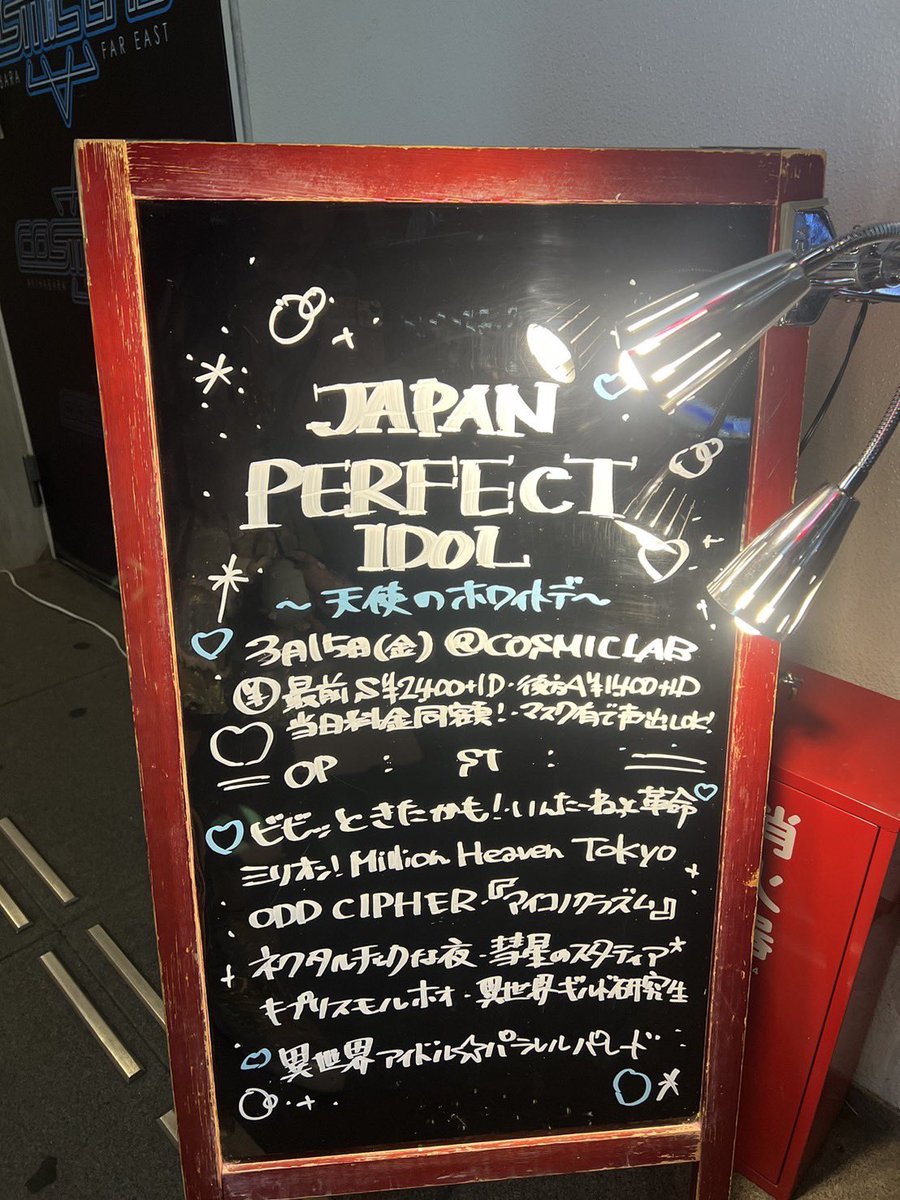 FAR EAST
JAPAN
PERFECT
IDOL
～天使のホワイトデー～
3月15日(金) @COSMICLAB
¥ 最前S¥2400+1D・後方A¥1400+1D
当日料金同額!・マスク有で声出しOK!
OP : ST :
ビビッときたかも!・いんたーねっと革命
ミリオン! Million Heaven Tokyo
ODD CIPHER・『アイコノクラズム』
ネクタルチックな夜・彗星のスタティア*
キプリスモルホオ・異世界ギルド研究生
異世界アイドル☆パラレルパレード
消火